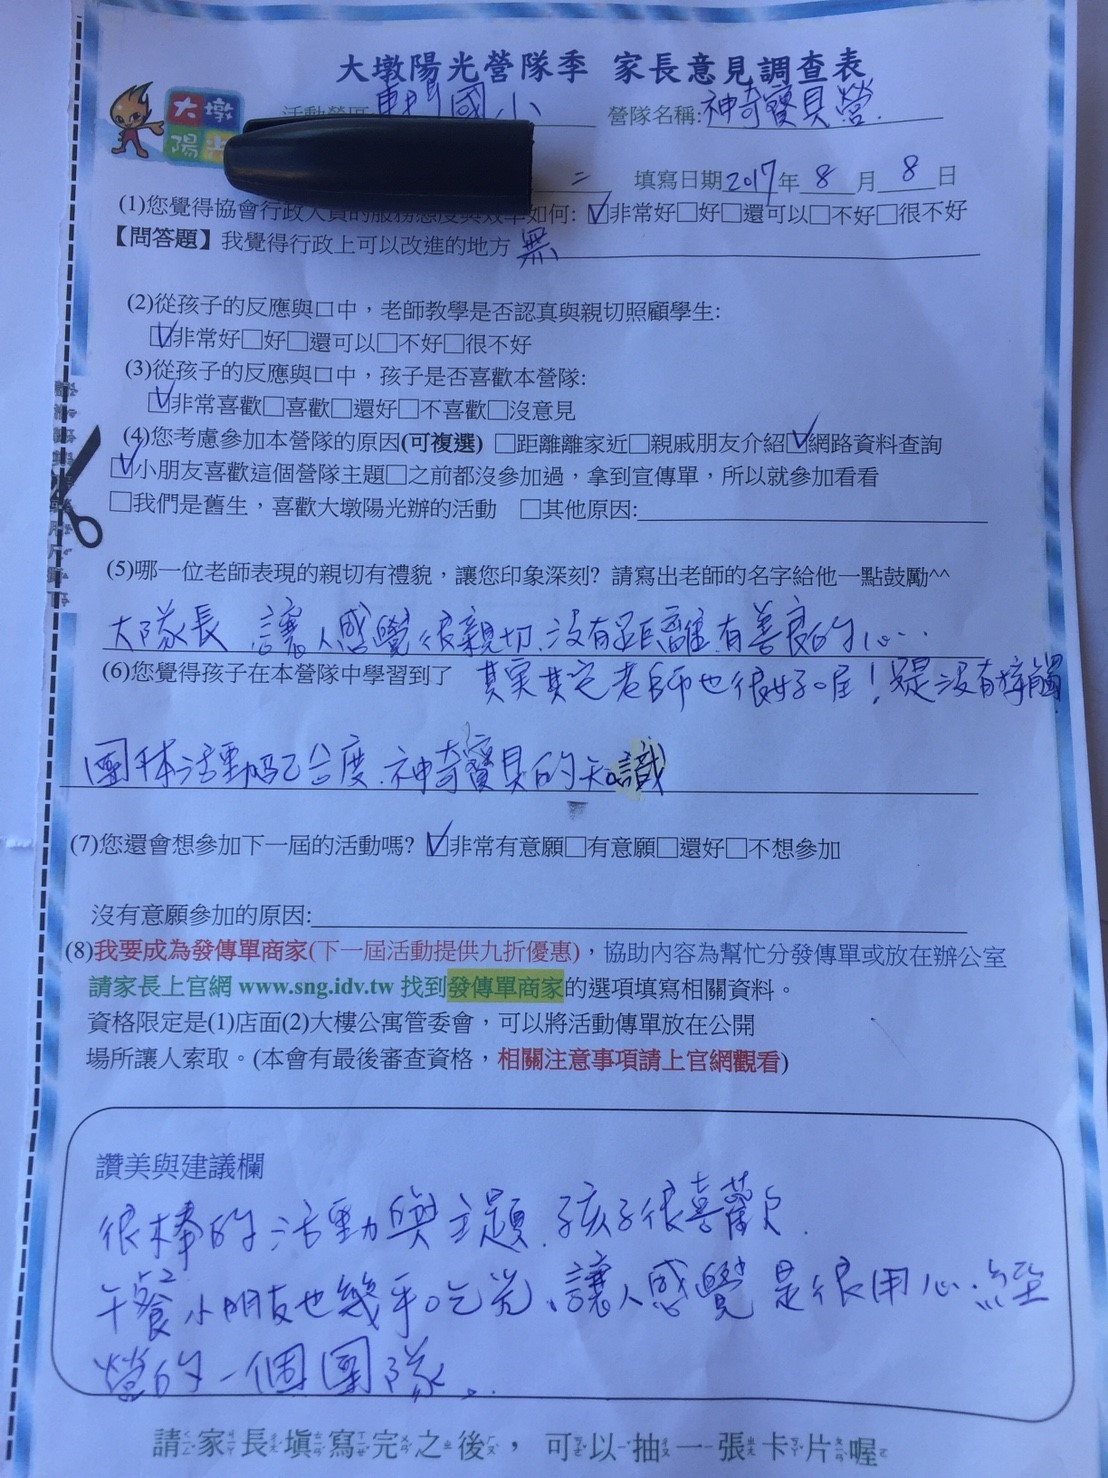 大墩陽光營隊季 家長意見調查表
大墩
陽
活動營區:東門國小 營隊名稱:神奇寶貝營
二 填寫日期2017年8月8日
(1)您覺得協會行政人員的服務態度與效率如何: ☑非常好□好□還可以□不好□很不好
【問答題】我覺得行政上可以改進的地方 無
(2)從孩子的反應與口中,老師教學是否認真與親切照顧學生:
☑非常好□好□還可以□不好□很不好
(3)從孩子的反應與口中,孩子是否喜歡本營隊:
☑非常喜歡□喜歡□還好□不喜歡□沒意見
(4)您考慮參加本營隊的原因(可複選) □距離離家近□親戚朋友介紹☑網路資料查詢
☑小朋友喜歡這個營隊主題□之前都沒參加過,拿到宣傳單,所以就參加看看
□我們是舊生,喜歡大墩陽光辦的活動 □其他原因:
(5)哪一位老師表現的親切有禮貌,讓您印象深刻? 請寫出老師的名字給他一點鼓勵^^
大隊長 讓人感覺很親切.沒有距離.有善良的心...
(6)您覺得孩子在本營隊中學習到了 其實其它老師也很好喔!只是沒有接觸
團体活動的合度.神奇寶貝的知識
(7)您還會想參加下一屆的活動嗎? ☑非常有意願□有意願□還好□不想參加
沒有意願參加的原因:
(8)我要成為發傳單商家(下一屆活動提供九折優惠),協助內容為幫忙分發傳單或放在辦公室
請家長上官網 www.sng.idv.tw 找到發傳單商家的選項填寫相關資料。
資格限定是(1)店面(2)大樓公寓管委會,可以將活動傳單放在公開
場所讓人索取。(本會有最後審查資格,相關注意事項請上官網觀看)
讚美與建議欄
很棒的活動與主題.孩子很喜歡.
午餐小朋友也幾乎吃光、讓人感覺是很用心經
營的一個團隊..
請家長填寫完之後,可以抽一張卡片喔